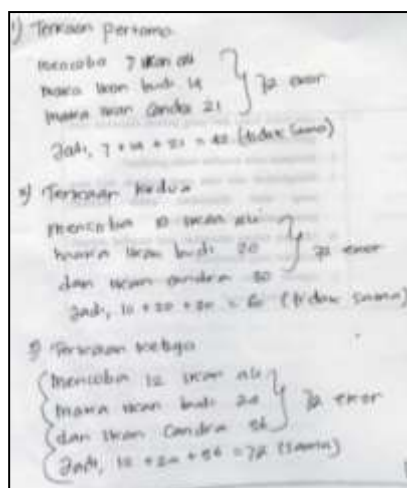 1) Terkaan pertama
mencoba 7 ikan ali
maka ikan budi 14
maka ikan Candra 21
72 ekor
Jadi, 7 + 14 + 21 = 42 (tidak sama)
2) Terkaan kedua
mencoba 10 ikan ali
maka ikan budi 20
dan ikan candra 30
72 ekor
Jadi, 10 + 20 + 30 = 60 (tidak sama)
3) Terkaan ketiga
mencoba 12 ikan ali
maka ikan budi 24
dan ikan Candra 36
72 ekor
Jadi, 12 + 24 + 36 = 72 (sama)